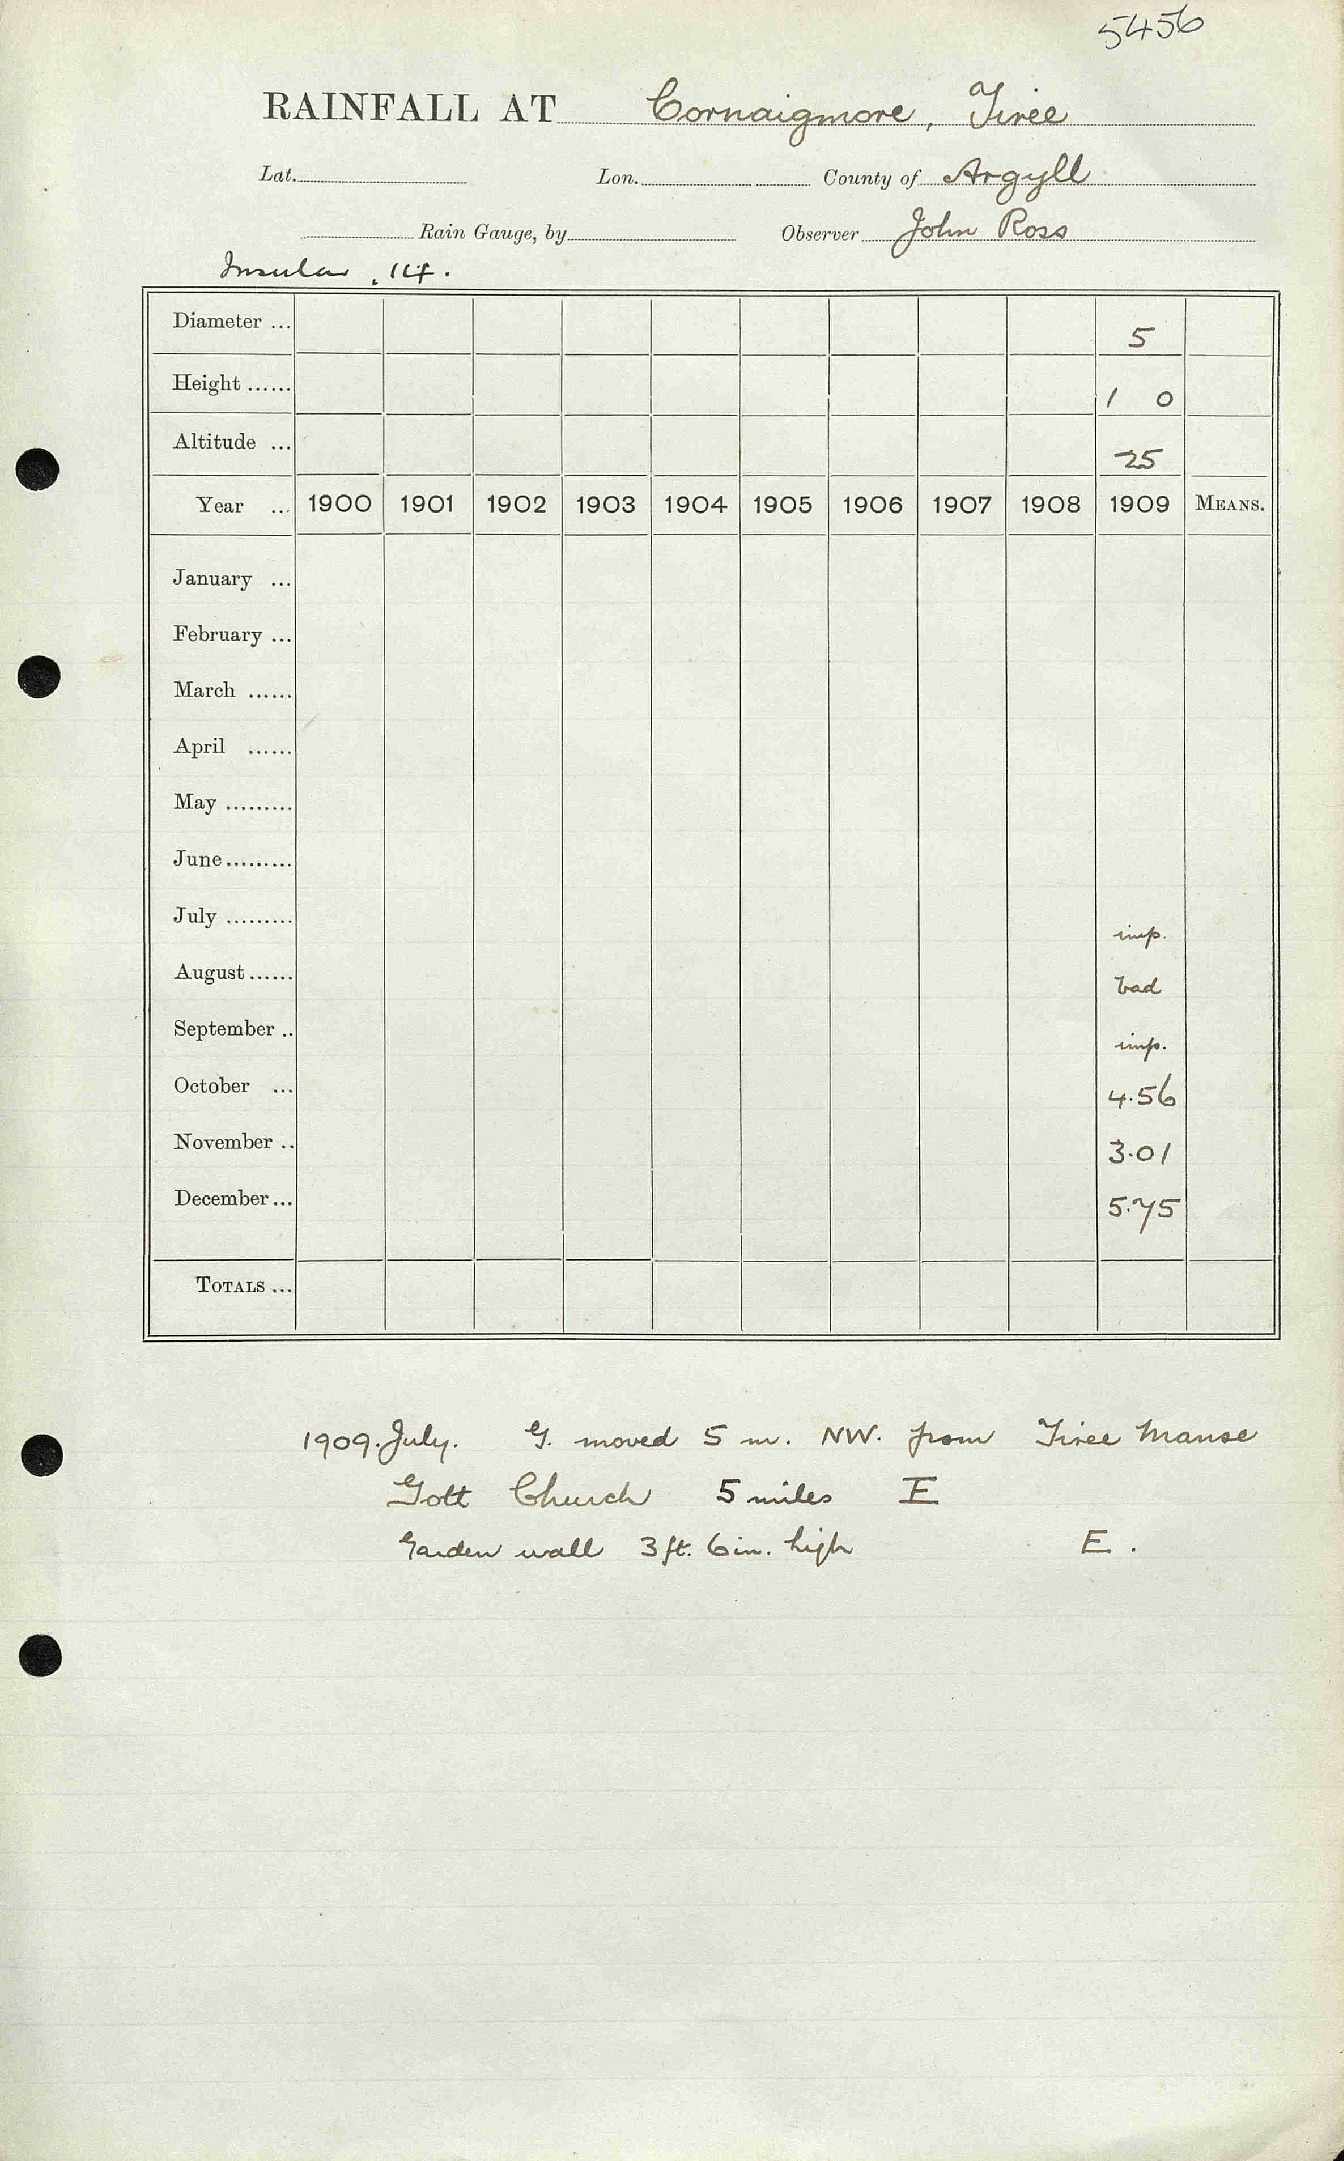 5456
RAINFALL AT Cornaigmore, Tiree
Lat. Lon. County of Argyll
Rain Gauge, by Observer John Ross
Insular, 14.
Diameter ... 5
Height ...... 1 0
Altitude ... 25
Year ... 1900 1901 1902 1903 1904 1905 1906 1907 1908 1909 MEANS.
January ...
February ...
March ......
April ......
May .........
June.........
July ......... imp.
August...... bad
September .. imp.
October ... 4.56
November .. 3.01
December... 5.75
TOTALS ...
1909. July. G. moved 5 m. NW. from Tiree Manse
Gott Church 5 miles E
Garden wall 3 ft. 6 in. high E.